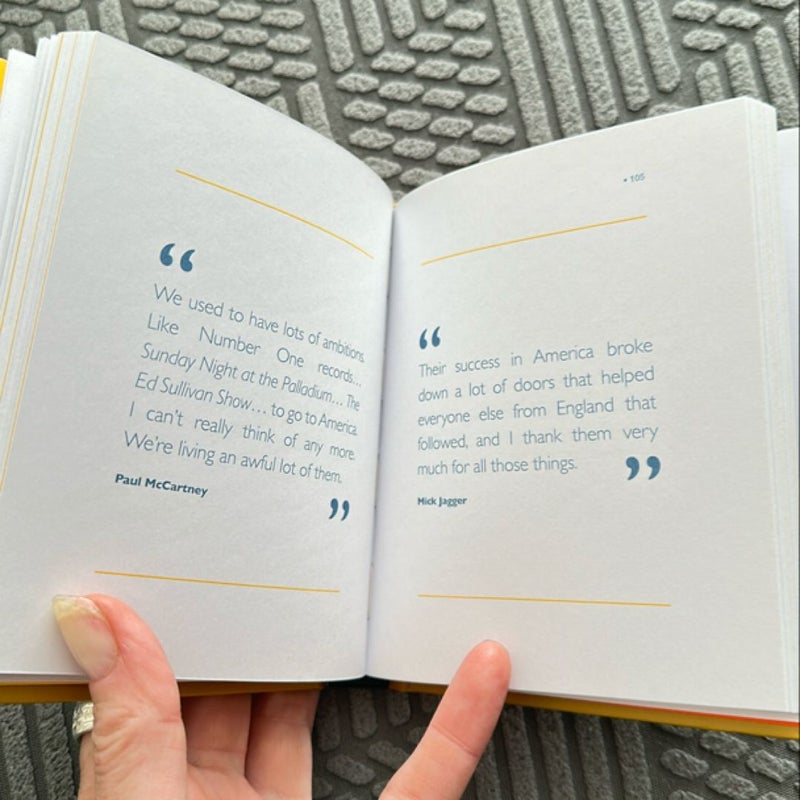 “
We used to have lots of ambitions.
Like Number One records...
Sunday Night at the Palladium... The
Ed Sullivan Show... to go to America.
I can't really think of any more.
We're living an awful lot of them.
”
Paul McCartney
• 105
“
Their success in America broke
down a lot of doors that helped
everyone else from England that
followed, and I thank them very
much for all those things. ”
Mick Jagger